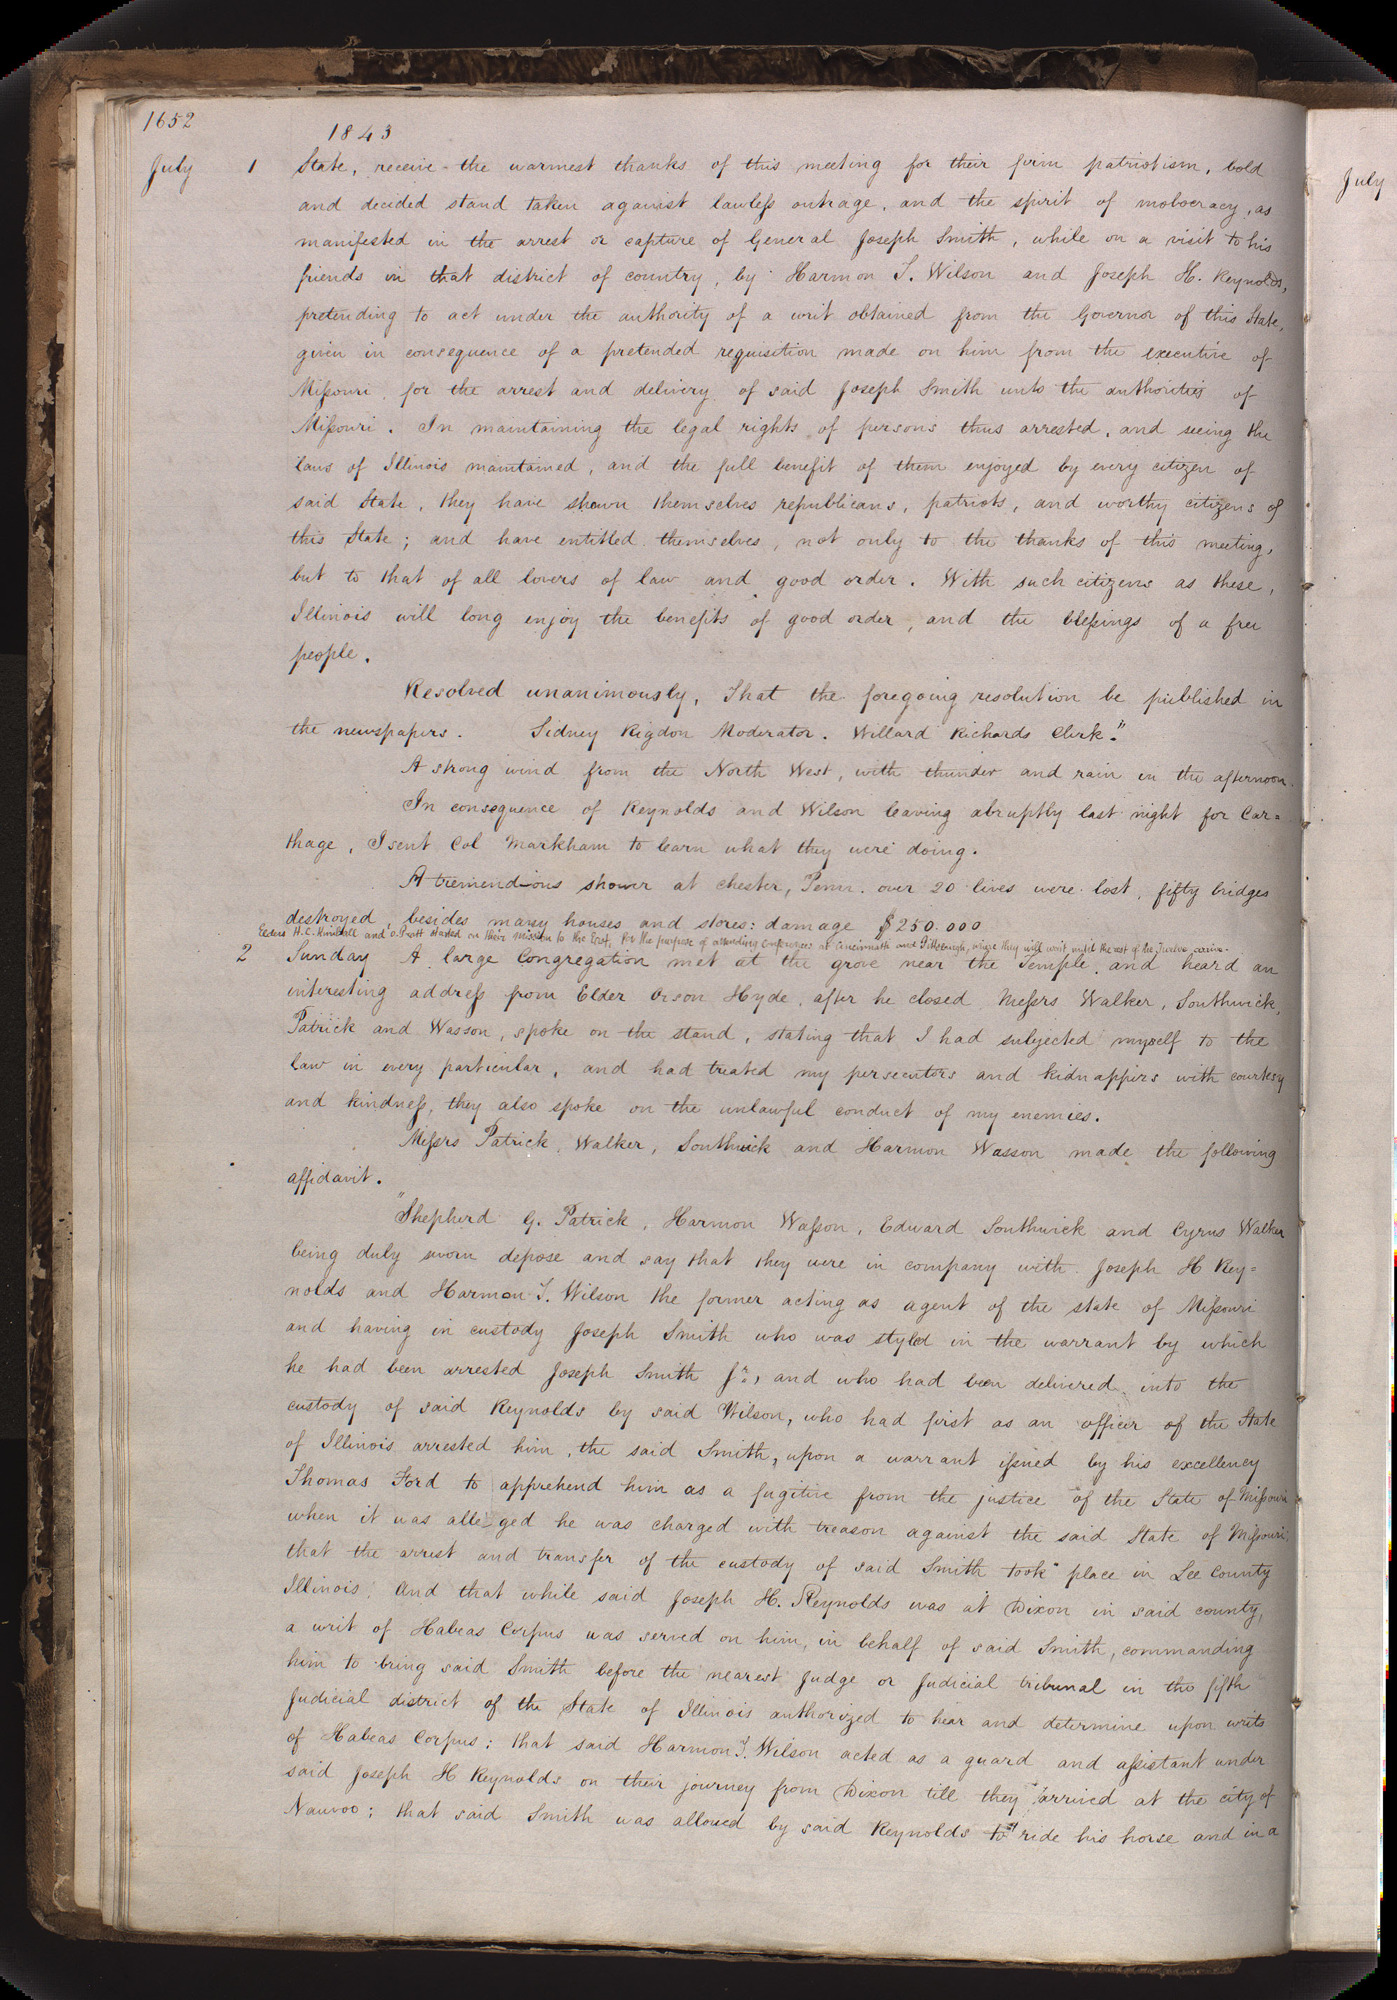 1652
1843
July 1 State, receive the warmest thanks of this meeting for their firm patriotism, bold
and decided stand taken against lawless outrage, and the spirit of mobocracy, as
manifested in the arrest or capture of General Joseph Smith, while on a visit to his
friends in that district of country, by Harmon T. Wilson and Joseph H. Reynolds,
pretending to act under the authority of a writ obtained from the Governor of this State,
given in consequence of a pretended requisition made on him from the executive of
Missouri for the arrest and delivery of said Joseph Smith unto the authorities of
Missouri. In maintaining the legal rights of persons thus arrested, and seeing the
laws of Illinois maintained, and the full benefit of them enjoyed by every citizen of
said State, they have shown themselves republicans, patriots, and worthy citizens of
this State; and have entitled themselves, not only to the thanks of this meeting,
but to that of all lovers of law and good order. With such citizens as these,
Illinois will long enjoy the benefits of good order, and the blessings of a free
people.
Resolved unanimously, That the foregoing resolution be published in
the newspapers. Sidney Rigdon Moderator. Willard Richards Clerk."
A strong wind from the North West, with thunder and rain in the afternoon.
In consequence of Reynolds and Wilson leaving abruptly last night for Car=
thage, I sent Col Markham to learn what they were doing.
A tremendious shower at Chester, Penn. over 20 lives were lost, fifty bridges
destroyed, besides many houses and stores: damage $250.000
Elders H. C. Kimball and O. Pratt started on their mission to the East, for the purpose of attending conferences at Cincinnatti and Pittsburgh, where they will wait until the rest of the Twelve arrive.
2 Sunday A large Congregation met at the grove near the Temple, and heard an
interesting address from Elder Orson Hyde, after he closed Messrs Walker, Southwick,
Patrick and Wasson, spoke on the stand, stating that I had subjected myself to the
law in every particular, and had treated my persecutors and kidnappers with courtesy
and kindness, they also spoke on the unlawful conduct of my enemies.
Messrs Patrick, Walker, Southwick and Harmon Wasson made the following
affidavit.
"Shepherd G. Patrick, Harmon Wasson, Edward Southwick and Cyrus Walker
being duly sworn depose and say that they were in company with Joseph H Rey=
nolds and Harmon T. Wilson the former acting as agent of the state of Missouri
and having in custody Joseph Smith who was styled in the warrant by which
he had been arrested Joseph Smith Jr., and who had been delivered into the
custody of said Reynolds by said Wilson, who had first as an officer of the State
of Illinois arrested him, the said Smith, upon a warrant issued by his excellency
Thomas Ford to apprehend him as a fugitive from the justice of the State of Missouri
when it was alleged he was charged with treason against the said State of Missouri
that the arrest and transfer of the custody of said Smith took place in Lee County
Illinois. And that while said Joseph H. Reynolds was at Dixon in said county,
a writ of Habeas Corpus was served on him, in behalf of said Smith, commanding
him to bring said Smith before the nearest Judge or Judicial tribunal in the fifth
Judicial district of the State of Illinois authorized to hear and determine upon writs
of Habeas Corpus; that said Harmon T. Wilson acted as a guard and assistant under
said Joseph H Reynolds on their journey from Dixon till they arrived at the city of
Nauvoo; that said Smith was allowed by said Reynolds to ride his horse and in a
July